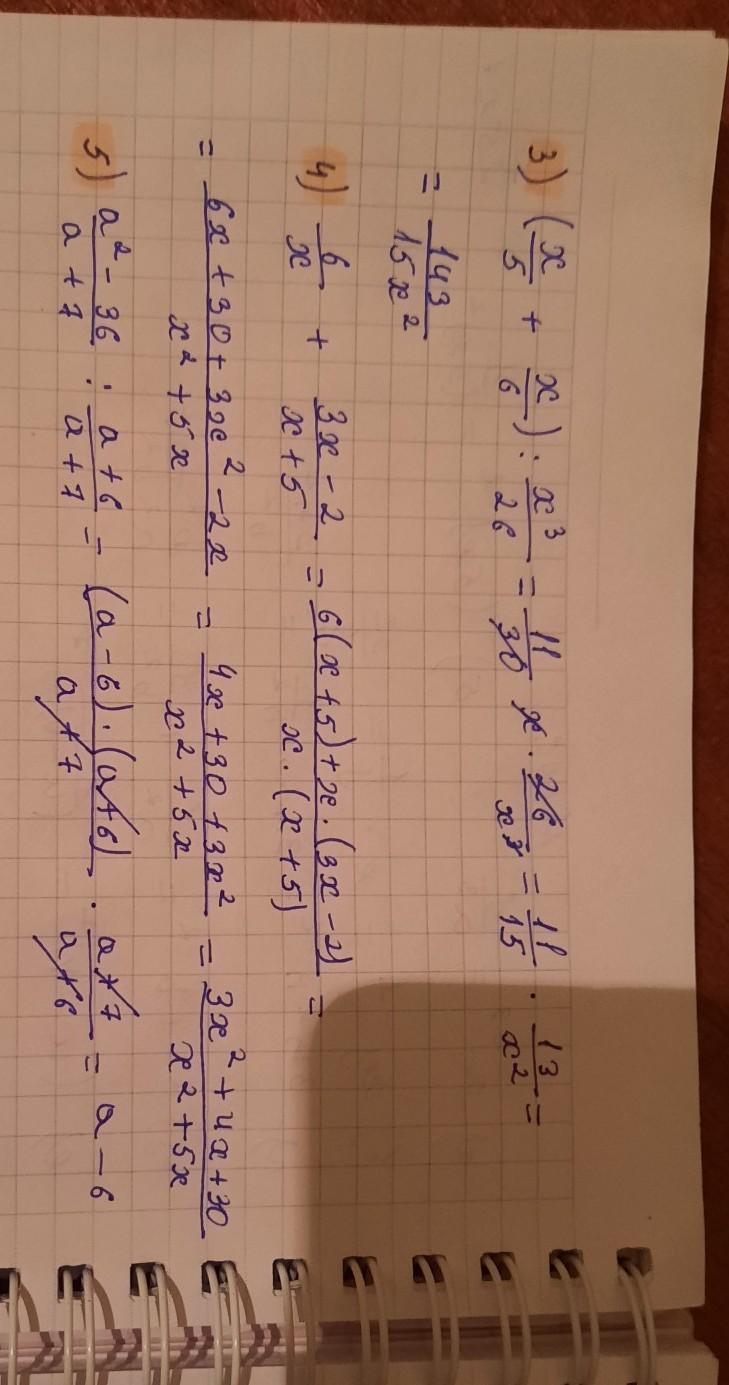 3) (x/5 + x/6) : x³/26 = 11/30 x · 26/x³ = 11/15 · 13/x² =
= 143/15x²
4) 6/x + 3x-2/x+5 = 6(x+5)+x·(3x-2)/x·(x+5) =
= 6x+30+3x²-2x/x²+5x = 4x+30+3x²/x²+5x = 3x²+4x+30/x²+5x
5) a²-36/a+7 : a+6/a+7 = (a-6)·(a+6)/a+7 · a+7/a+6 = a-6